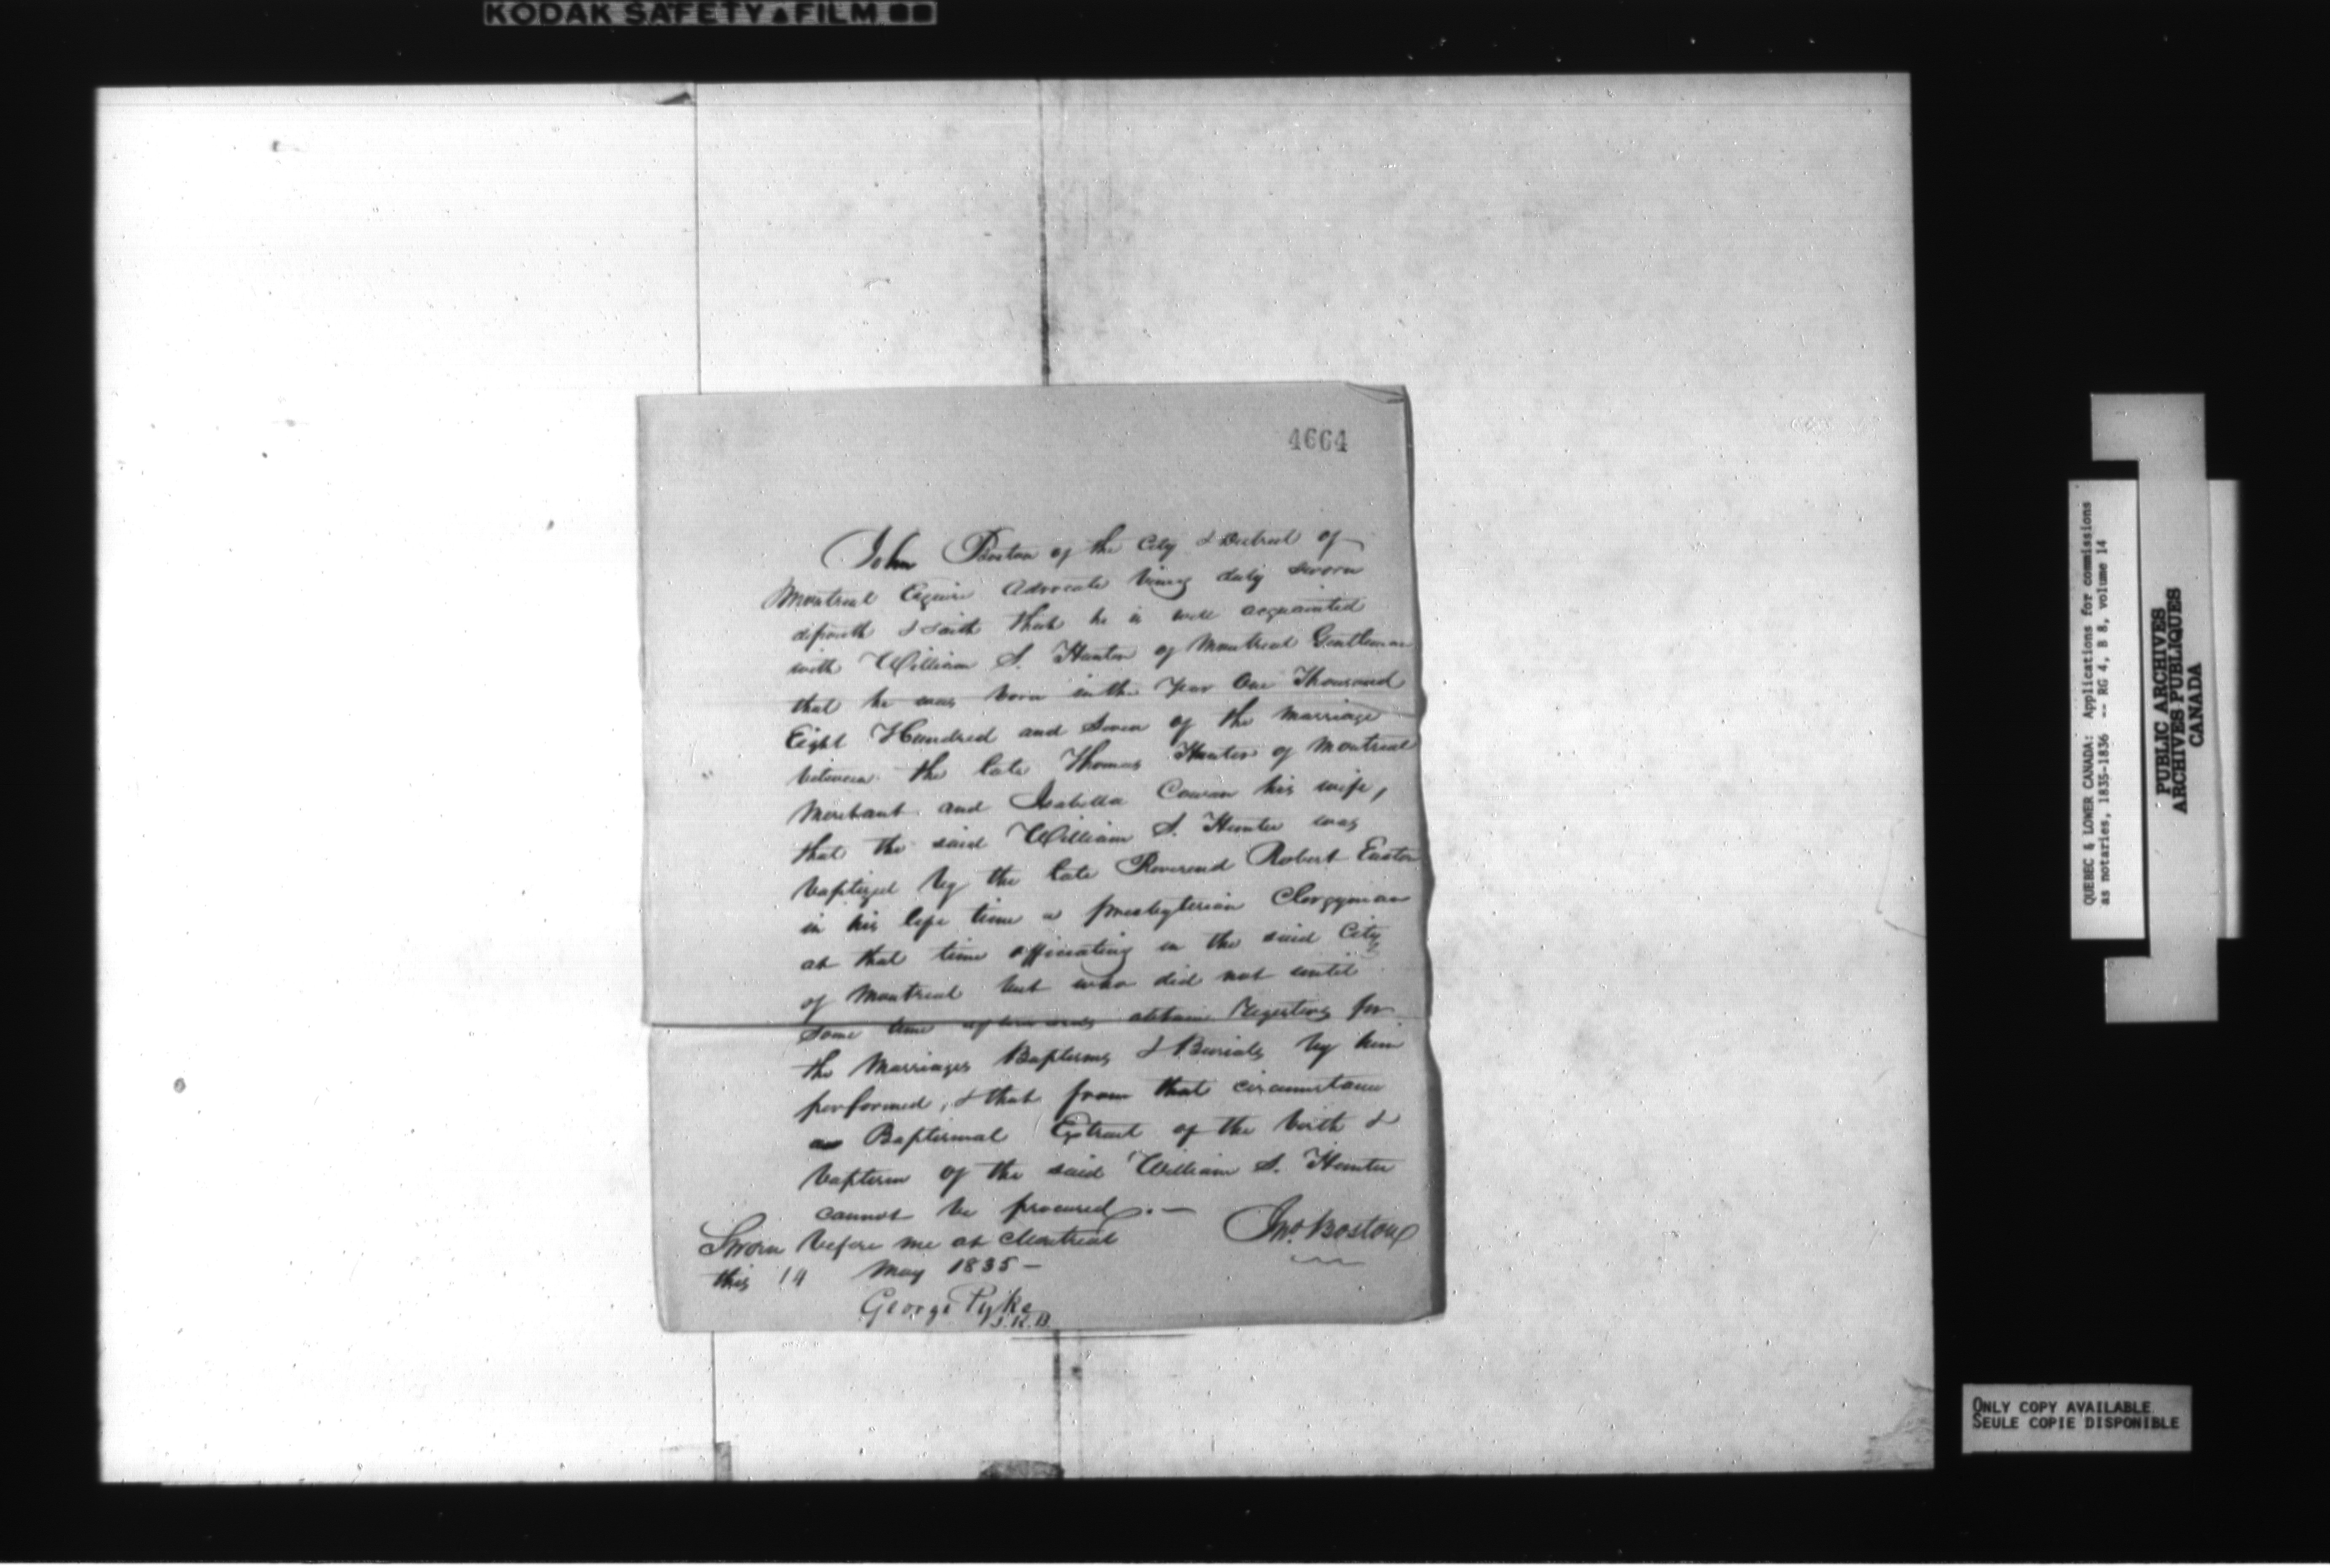 KODAK SAFETY FILM
4664
John Boston of the City & District of
Montreal Esquire Advocate being duly sworn
deposeth & saith that he is well acquainted
with William S. Hunter of Montreal Gentleman
that he was born in the Year One Thousand
Eight Hundred and Seven of the marriage
between the late Thomas Hunter of Montreal
Merchant and Isabella Cowan his wife,
that the said William S. Hunter was
baptized by the late Reverend Robert Easton
in his life time a presbyterian Clergyman
at that time officiating in the said City
of Montreal but who did not until
some time afterwards obtain Registers for
the Marriages Baptisms & Burials by him
performed, & that from that circumstance
a Baptismal Extract of the birth &
baptism of the said William S. Hunter
cannot be procured.—
Jno. Boston
Sworn before me at Montreal
this 14 May 1835—
George Pyke
J.K.B.
QUEBEC & LOWER CANADA: Applications for commissions
as notaries, 1835-1836 -- RG 4, B 8, volume 14
PUBLIC ARCHIVES
ARCHIVES PUBLIQUES
CANADA
ONLY COPY AVAILABLE
SEULE COPIE DISPONIBLE